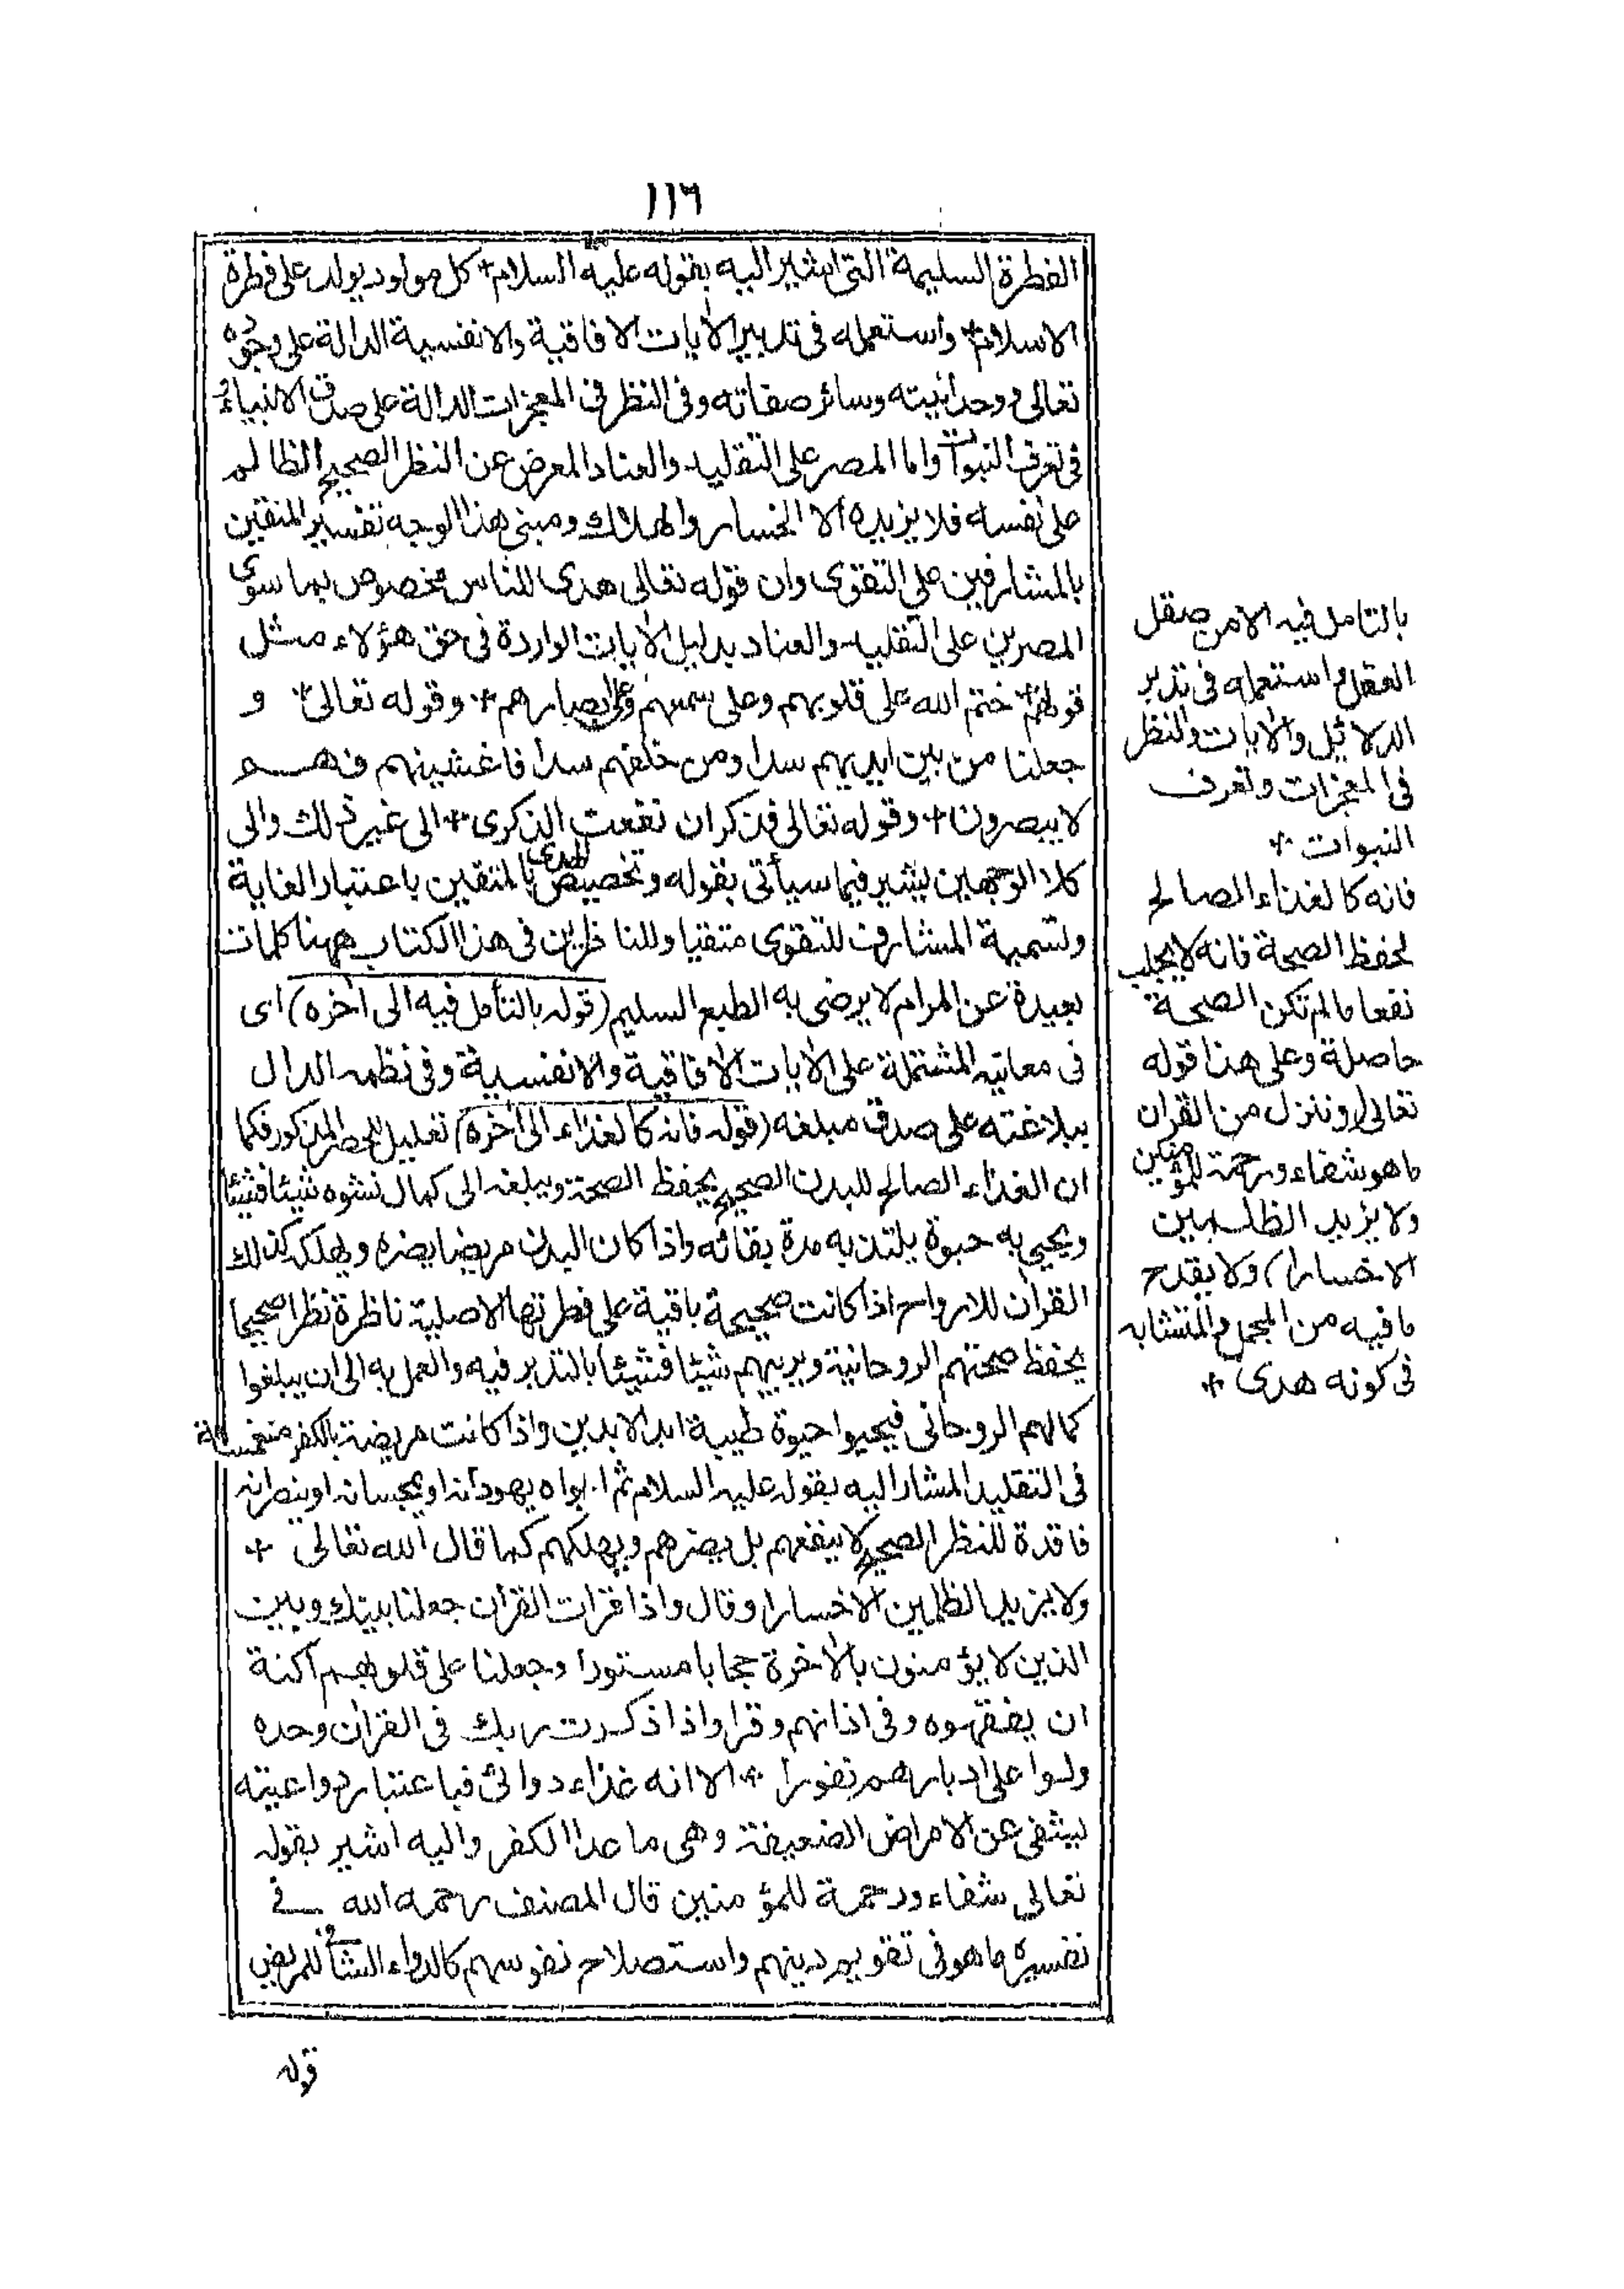 ١١٦
الفطرة السليمة التى اشير اليه بقوله عليه السلام* كل مولود يولد على فطرة
الاسلام* واستعمله فى تدبير الأيات الافاقية والانفسية الدالة على وجوده
تعالى ووحدانيته وسائر صفاته وفى النظر فى المعجزات الدالة على صدق الانبياء
فى تعرف النبوات واما المصر على التقليد والعناد المعرض عن النظر الصحيح الظالم
على نفسه فلا يزيده الا الخسار والهلاك ومبنى هذا الوجه تفسير المتقين
بالمشارفين على التقوى وان قوله تعالى هدى للناس مخصوص بما سوى
المصرين على التقليد والعناد بدليل الأيات الواردة فى حق هؤلاء مثل
قوله* ختم الله على قلوبهم وعلى سمعهم وعلى ابصارهم* وقوله تعالى* و
جعلنا من بين ايديهم سدا ومن خلفهم سدا فاغشينهم فهم
لا يبصرون* وقوله تعالى فذكر ان نفعت الذكرى* الى غير ذلك والى
كلا الوجهين يشير فيما سيأتى بقوله وتخصيص الهدى بالمتقين باعتبار الغاية
وتسمية المشارف للتقوى متقيا وللناظرين فى هذا الكتاب ههنا كلمات
بعيدة عن المرام لا يرضى به الطبع السليم (قوله بالتأمل فيه الى أخره) اى
فى معانيه المشتملة على الأيات الأفاقية والانفسية وفى نظمه الدال
ببلاغته على صدق مبلغه (قوله فانه كالغذاء الى أخره) تعليل للحصر المذكور فكما
ان الغذاء الصالح للبدن الصحيح يحفظ الصحة ويبلغه الى كمال نشوه شيئا فشيئا
ويحيى به حيوة يلتذ به مدة بقائه واذا كان البدن مريضا يضره ويهلكه كذلك
القرأن للارواح اذا كانت صحيحة باقية على فطرتها الاصلية ناظرة نظرا صحيحا
يحفظ صحتهم الروحانية ويربيهم شيئا فشيئا بالتدبر فيه والعمل به الى ان يبلغوا
كمالهم الروحانى فيحيوا حيوة طيبة ابد الابدين واذا كانت مريضة بالكفر منغمسة
فى التقليد المشار اليه بقوله عليه السلام ثم ابواه يهودانه او يمجسانه او ينصرانه
فاقدة للنظر الصحيح لا ينفعهم بل يضرهم ويهلكهم كما قال الله تعالى *
ولا يزيد الظلمين الا خسارا وقال واذا قرات القرأن جعلنا بينك وبين
الذين لا يؤمنون بالأخرة حجابا مستورا وجعلنا على قلوبهم اكنة
ان يفقهوه وفى اذانهم وقرا واذا ذكرت ربك فى القرأن وحده
ولوا على ادبارهم نفورا * الا انه غذاء دوائى فباعتبار دواعيته
يشفى عن الامراض الضعيفة وهى ما عدا الكفر واليه اشير بقوله
تعالى شفاء ورحمة للمؤمنين قال المصنف رحمه الله فى
تفسيره ما هو فى تقويم دينهم واستصلاح نفوسهم كالدواء الشافى للمريض
قوله
بالتامل فيه الا من صقل
العقل واستعمله فى تدبر
الدلائل والأيات والنظر
فى المعجزات وتعرف
النبوات *
فانه كالغذاء الصالح
لحفظ الصحة فانه لا يجلب
نفعا ما لم تكن الصحة
حاصلة وعلى هذا قوله
تعالى (وننزل من القرأن
ما هو شفاء ورحمة للمؤمنين
ولا يزيد الظلمين
الا خسارا) ولا يقدح
ما فيه من المجمل والمتشابه
فى كونه هدى *